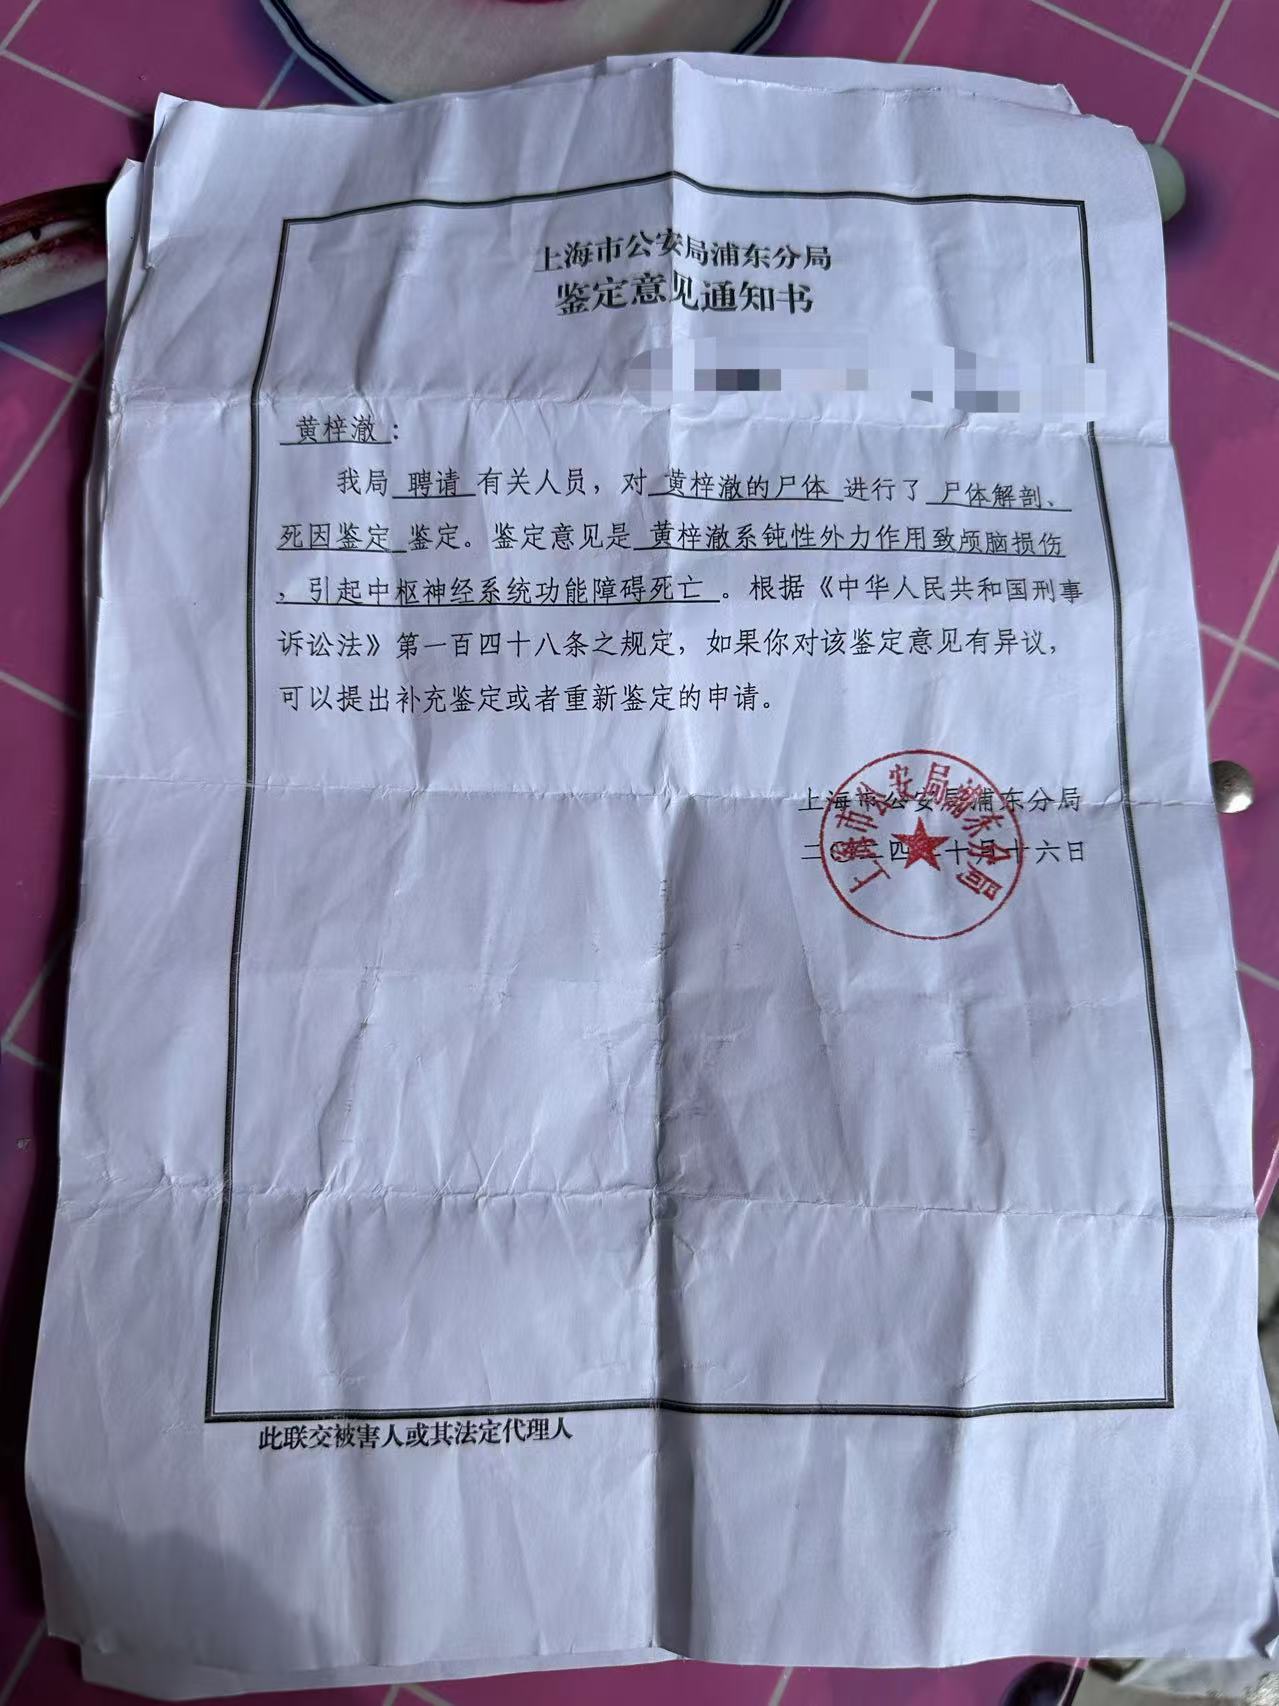 上海市公安局浦东分局
鉴定意见通知书
黄梓澈：
我局 聘请 有关人员，对 黄梓澈的尸体 进行了 尸体解剖、
死因鉴定 鉴定。鉴定意见是 黄梓澈系钝性外力作用致颅脑损伤
，引起中枢神经系统功能障碍死亡 。根据《中华人民共和国刑事
诉讼法》第一百四十八条之规定，如果你对该鉴定意见有异议，
可以提出补充鉴定或者重新鉴定的申请。
上海市公安局浦东分局
二〇二四年十月十六日
上海市公安局浦东分局
此联交被害人或其法定代理人